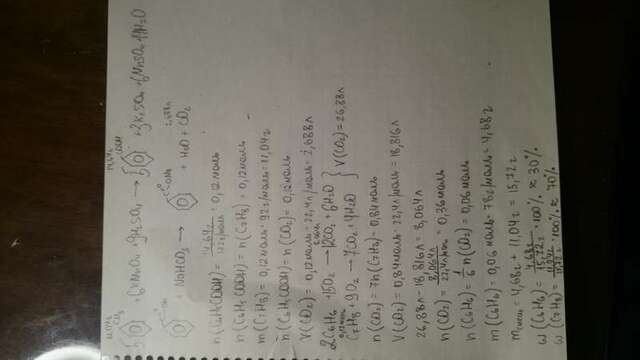 11,04г CH3 14,64г COOH
5 + 6KMnO4 + 9H2SO4 → 5 + 3K2SO4 + 6MnSO4 + 14H2O
2,688л
COOH + NaHCO3 → + H2O + CO2
n(C6H5COOH) = 14,64г / 122г/моль = 0,12моль
n(C6H5COOH) = n(C7H8) = 0,12моль
m(C7H8) = 0,12моль · 92г/моль = 11,04г
n(C6H5COOH) = n(CO2) = 0,12моль
V(CO2) = 0,12моль · 22,4л/моль = 2,688л
2C6H6 + 15O2 → 12CO2 + 6H2O
0,12моль
C7H8 + 9O2 → 7CO2 + 4H2O } V(CO2) = 26,88л
n(CO2) = 7n(C7H8) = 0,84моль
V(CO2) = 0,84моль · 22,4л/моль = 18,816л
26,88л - 18,816л = 8,064л
n(CO2) = 8,064л / 22,4л/моль = 0,36моль
n(C6H6) = 1/6 n(CO2) = 0,06моль
m(C6H6) = 0,06моль · 78г/моль = 4,68г
mсмеси = 4,68г + 11,04г = 15,72г
ω(C6H6) = 4,68г / 15,72г · 100% ≈ 30%
ω(C7H8) = 11,04г / 15,72г · 100% ≈ 70%